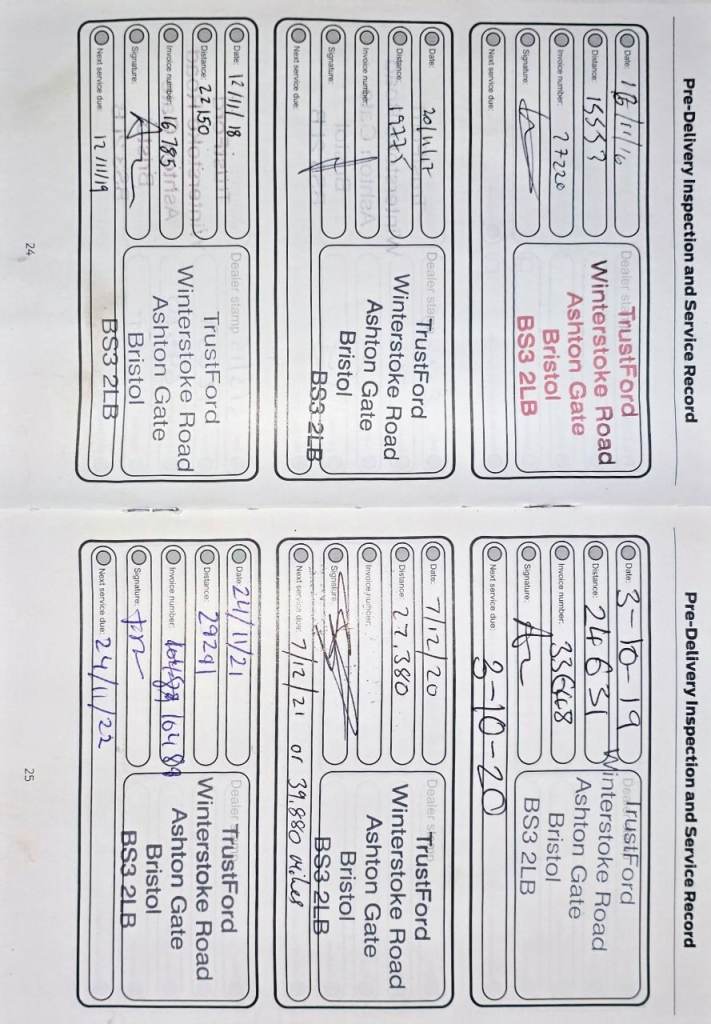 Pre-Delivery Inspection and Service Record
Date: 18/11/16
Distance: 15553
Invoice number: 27220
Signature:
Next service due:
Dealer stamp
TrustFord
Winterstoke Road
Ashton Gate
Bristol
BS3 2LB
Date: 20/11/17
Distance: 19775
Invoice number:
Signature:
Next service due:
Dealer stamp
TrustFord
Winterstoke Road
Ashton Gate
Bristol
BS3 2LB
Date: 12/11/18
Distance: 22150
Invoice number: 16785
Signature:
Next service due: 12/11/19
Dealer stamp
TrustFord
Winterstoke Road
Ashton Gate
Bristol
BS3 2LB
24
Pre-Delivery Inspection and Service Record
Date: 3-10-19
Distance: 24631
Invoice number: 33648
Signature:
Next service due: 3-10-20
Dealer stamp
TrustFord
Winterstoke Road
Ashton Gate
Bristol
BS3 2LB
Date: 7/12/20
Distance: 27.380
Invoice number:
Signature:
Next service due: 7/12/21 or 39.880 miles
Dealer stamp
TrustFord
Winterstoke Road
Ashton Gate
Bristol
BS3 2LB
Date: 24/11/21
Distance: 29291
Invoice number: 10489
Signature:
Next service due: 24/11/22
Dealer stamp
TrustFord
Winterstoke Road
Ashton Gate
Bristol
BS3 2LB
25